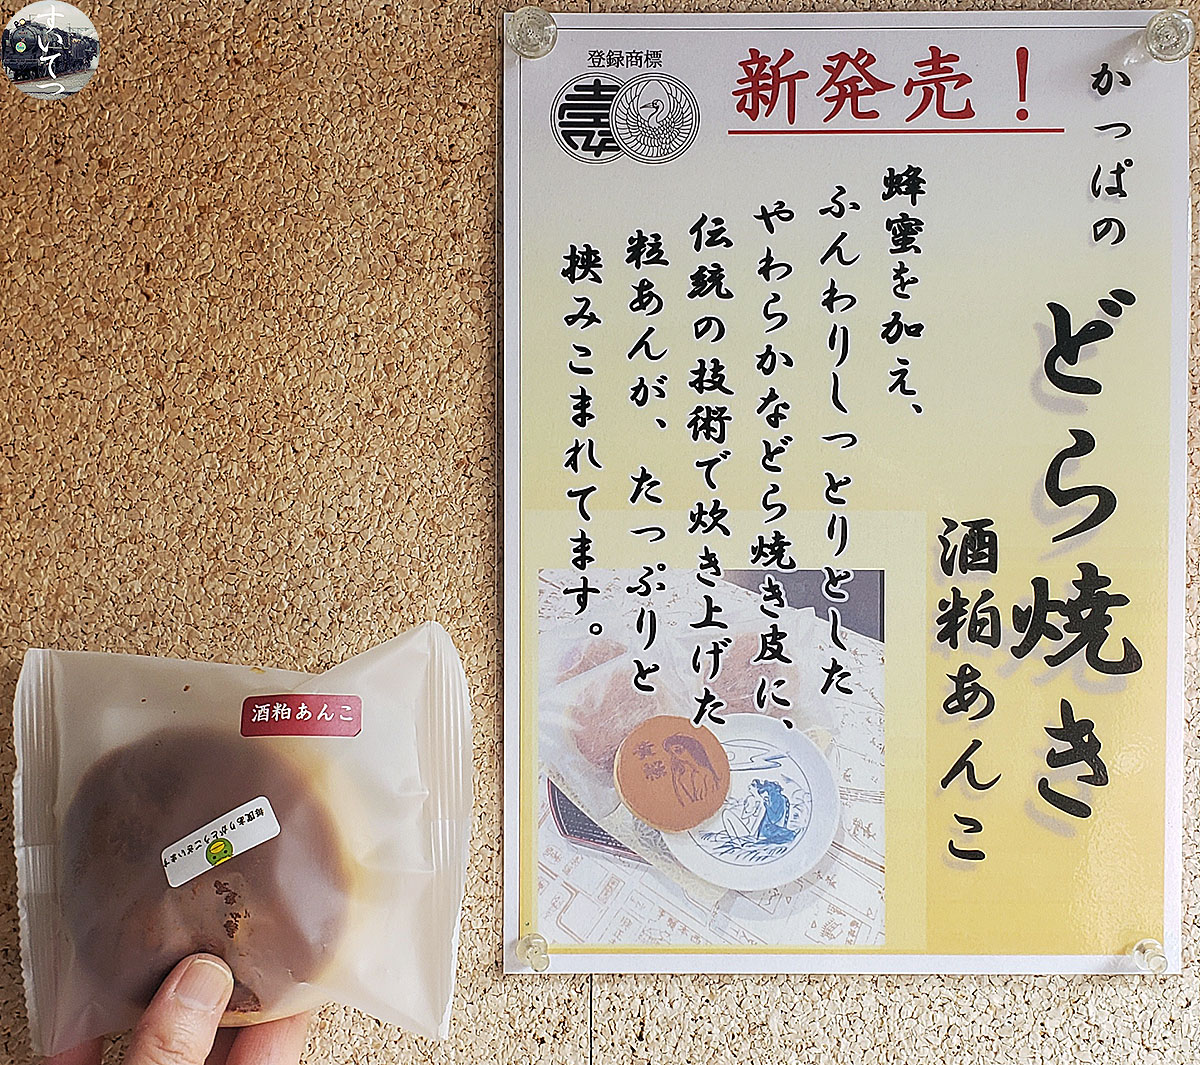 すいてつ
登録商標
壽
新発売！
かっぱの
どら焼き
酒粕あんこ
蜂蜜を加え、
ふんわりしっとりとした
やわらかなどら焼き皮に、
伝統の技術で炊き上げた
粒あんが、たっぷりと
挟みこまれてます。
酒粕あんこ
毎度ありがとうございます